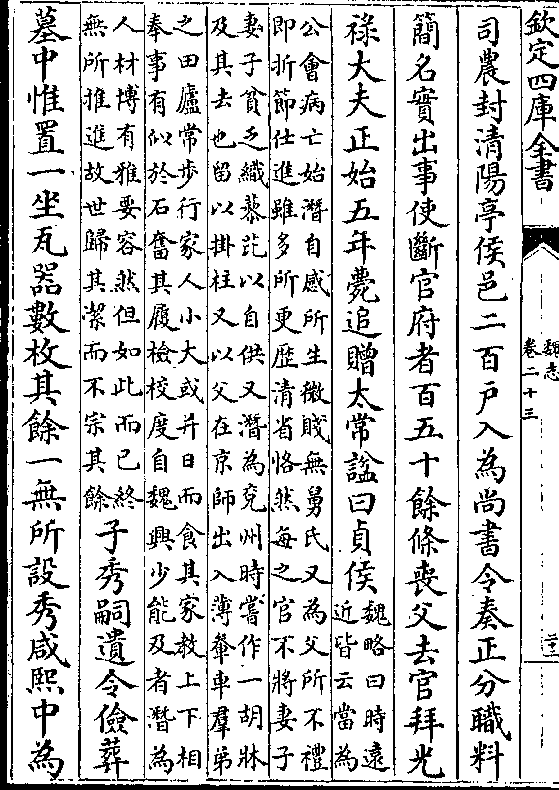 欽定四庫全書
魏志
卷二十三
司農封清陽亭侯邑二百戸入為尚書令奏正分職料
簡名實出事使斷官府者百五十餘條喪父去官拜光
祿大夫正始五年薨追贈太常諡曰貞侯
魏略曰時遠
近皆云當為
公會病亡始潛自感所生微賤無舅氏又為父所不禮
即折節仕進雖多所更歴清省恪然每之官不將妻子
妻子貧乏織藜芘以自供又潛為兖州時嘗作一胡牀
及其去也留以掛柱又以父在京師出入薄軬車羣弟
之田廬常步行家人小大或并日而食其家教上下相
奉事有似於石奮其履檢校度自魏興少能及者潛為
人材博有雅要容然但如此而已終
無所推進故世歸其潔而不宗其餘
子秀嗣遺令儉葬
墓中惟置一坐瓦器數枚其餘一無所設秀咸熙中為